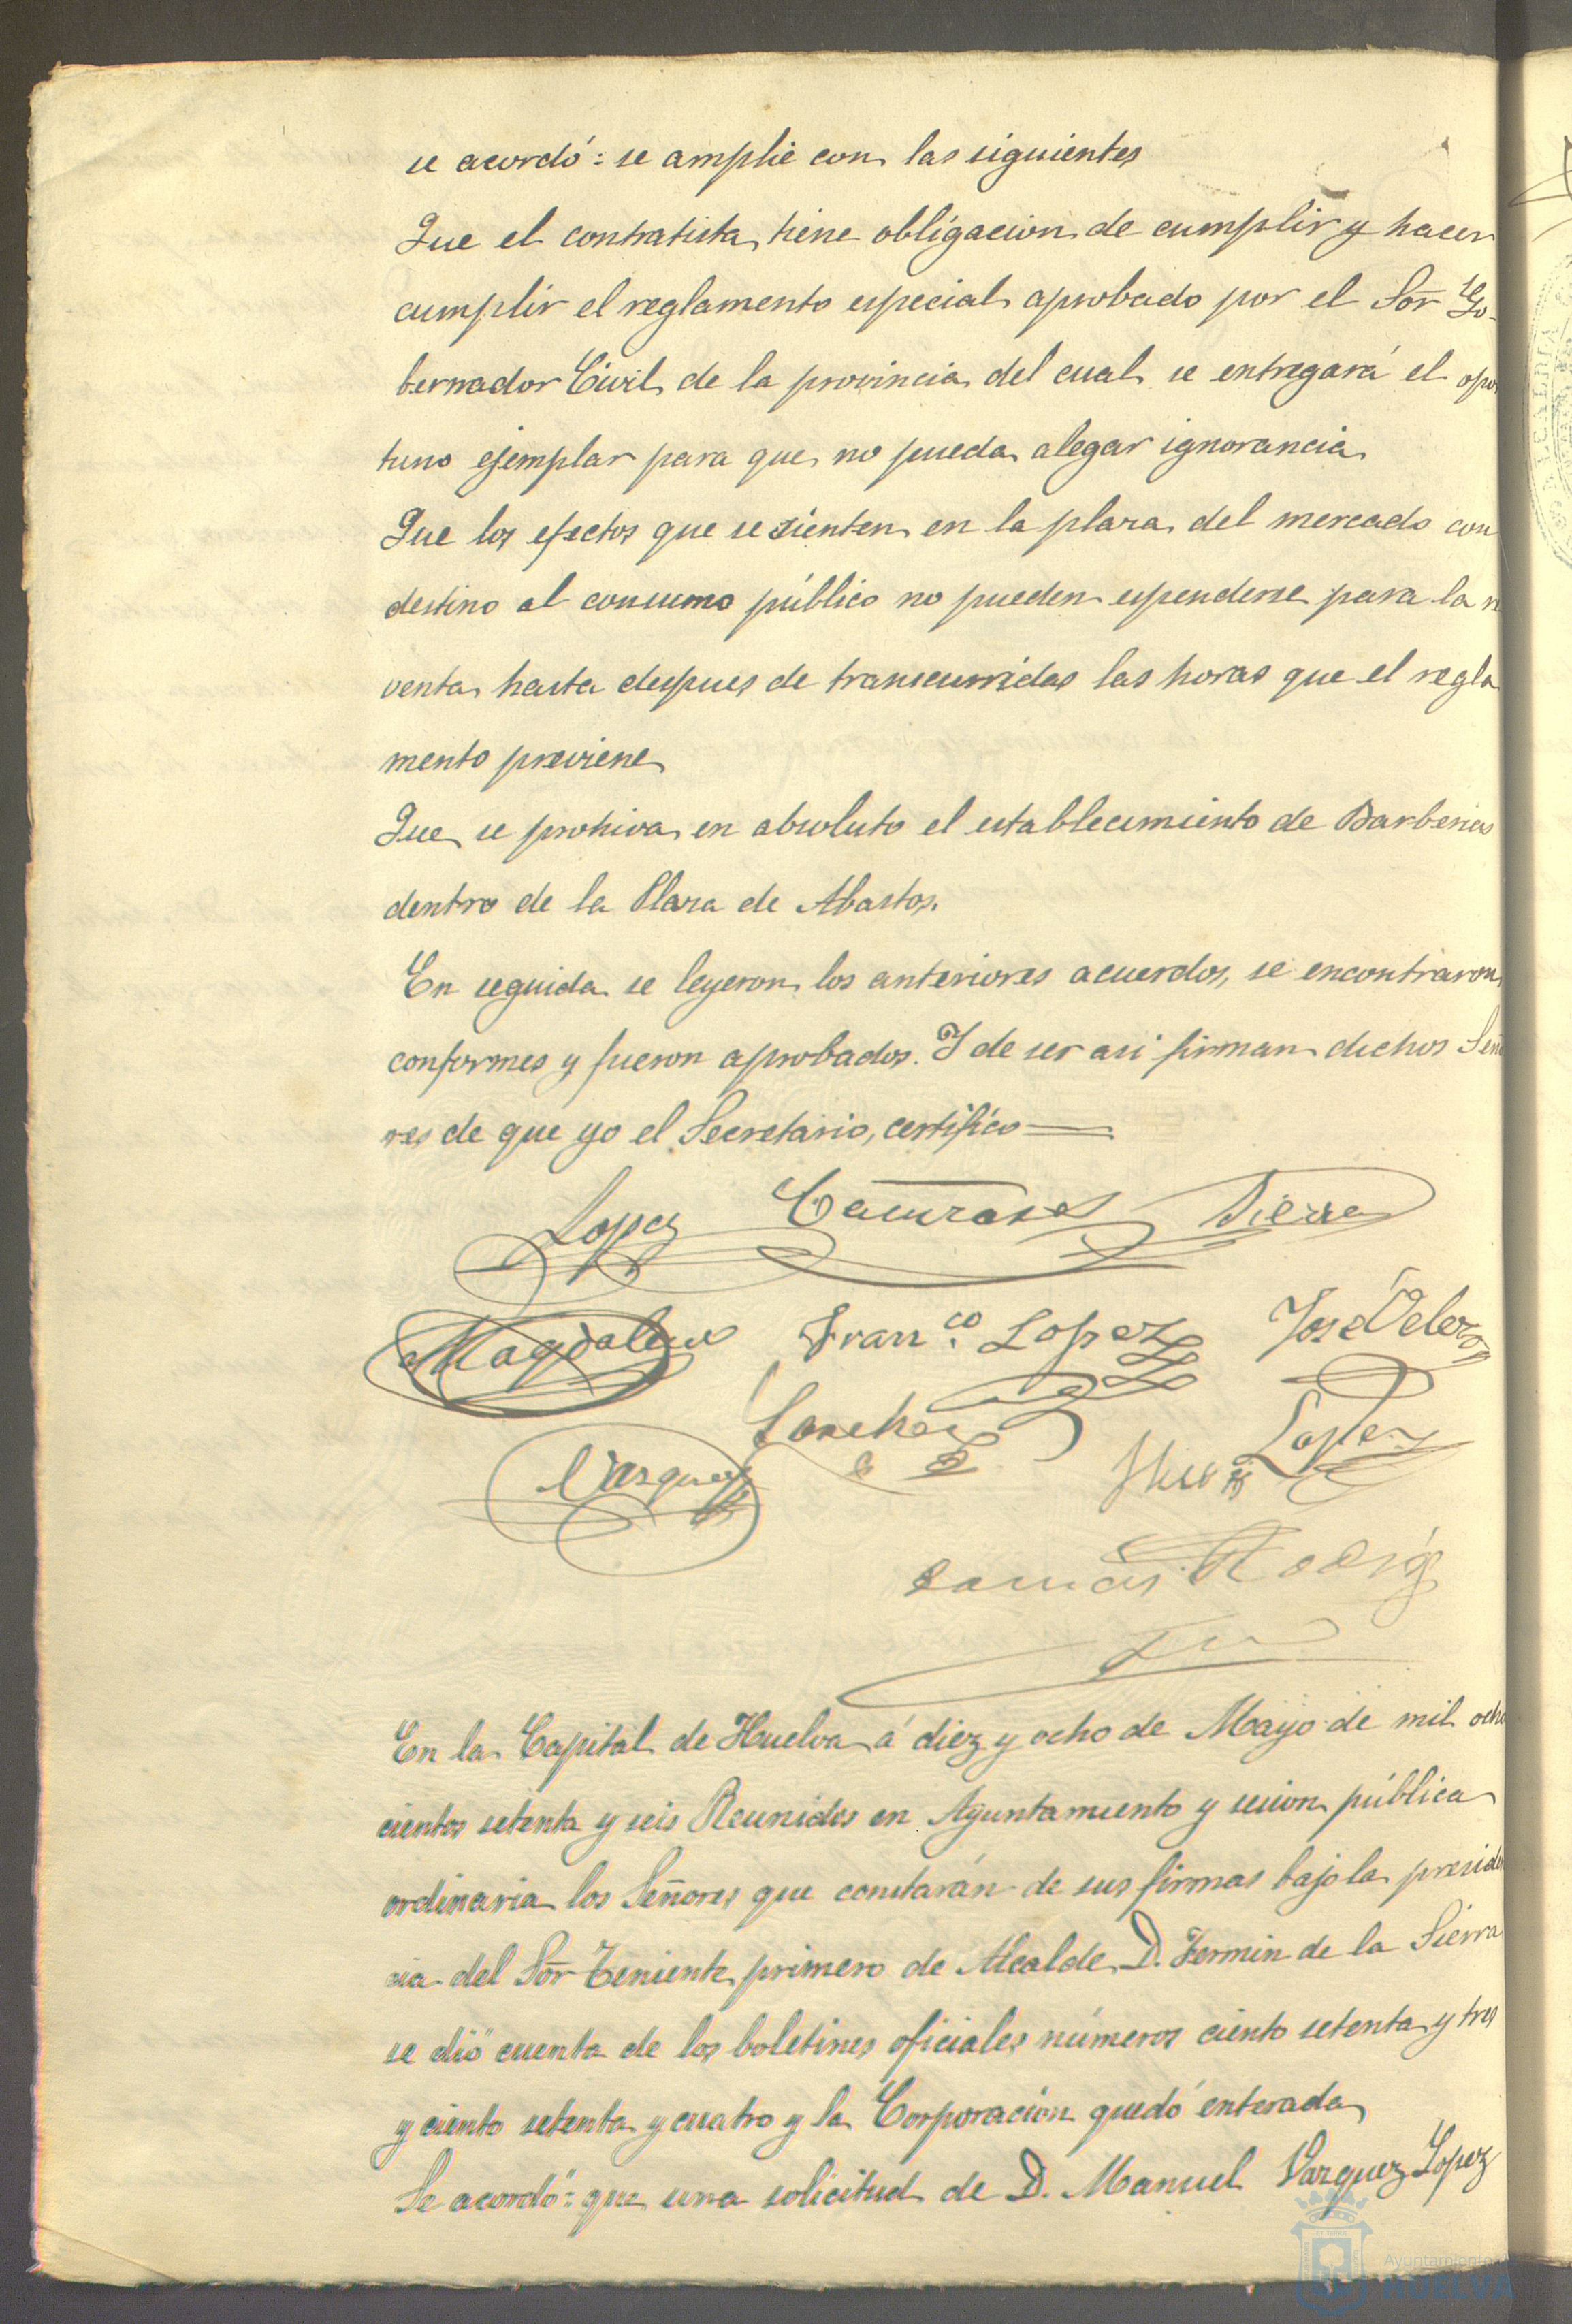 se acordó: se amplie con las siguientes
Que el contratista tiene obligacion de cumplir y hacer
cumplir el reglamento especial aprobado por el Sor Go-
bernador Civil de la provincia del cual se entregará el opor
tuno ejemplar para que no pueda alegar ignorancia
Que los efectos que se sienten en la plaza del mercado con
destino al consumo público no pueden espenderse para la re
venta hasta despues de transcurridas las horas que el regla
mento previene
Que se prohiva en absoluto el establecimiento de Barberias
dentro de la Plaza de Abastos.
En seguida se leyeron los anteriores acuerdos, se encontraron
conformes y fueron aprobados. Y de ser asi firman dichos Seño
res de que yo el Secretario, certifico
Lopez Sierra
Magdalena Franco. Lopez José
Sanchez Lopez
Vazquez
Tomás Rodrig
En la Capital de Huelva á diez y ocho de Mayo de mil ocho
cientos setenta y seis Reunidos en Ayuntamiento y sesion pública
ordinaria los Señores que constarán de sus firmas bajo la presiden
cia del Sor Teniente primero de Alcalde D. Fermin de la Sierra
se dió cuenta de los boletines oficiales números ciento setenta y tres
y ciento setenta y cuatro y la Corporacion quedó enterada
Se acordó: que una solicitud de D. Manuel Vazquez Lopez
Ayuntamiento
HUELVA